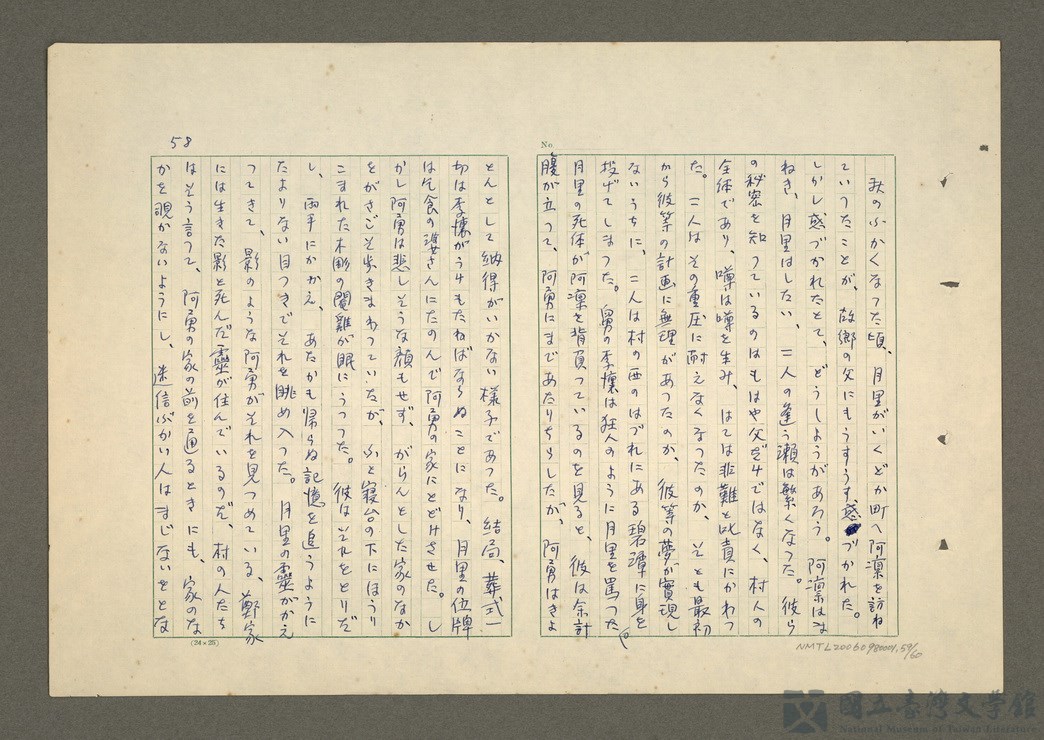 No
秋のふかくなつた頃、月里がいくどか町へ阿凛を訪ね
ていつたことが、故郷の父にもうすうす惑づかれた。
しかし惑づかれたとて、どうしようがあろう。阿凛はま
ねき、月里はしたい、二人の逢う瀬は繁くなつた。彼ら
の秘密を知つているのはもはや父だけではなく、村人の
全体であり、噂は噂を生み、はては非難と叱責にかわつ
た。二人はその重圧に耐えなくなつたのか、それとも最初
から彼等の計画に無理があつたのか、彼等の夢が實現し
ないうちに、二人は村の西のはづれにある碧潭に身を
投げてしまつた。舅の李懷は狂人のように月里を罵つた。
月里の死体が阿凛を背負つているのを見ると、彼は余計
腹が立つて、阿勇にまであたりちらしたが、阿勇はきよ
58
とんとして納得がいかない様子であつた。結局、葬式一
切は李懷がうけもたねばならぬことになり、月里の位牌
は乞食の婆さんにたのんで阿勇の家にとどけさせた。し
かし阿勇は悲しそうな顔もせず、がらんとした家のなか
をがさごそ歩きまわつていたが、ふと寝台の下にほうり
こまれた木彫の闘雞が眼にうつつた。彼はそれをとりだ
し、両手にかかえ、あたかも帰らぬ記憶を追うように
たよりない目つきでそれを眺め入つた。月里の靈がかえ
つてきて、影のような阿勇がそれを見つめている、鄭家
には生きた影と死んだ靈が住んでいるのだ、村の人たち
はそう言つて、阿勇の家の前を通るときにも、家のな
かを覗かないようにし、迷信ぶかい人はまじないをとな
(24×25)
NMTL20060980001.59/60
國立臺灣文学館
National Museum of Taiwan Literature